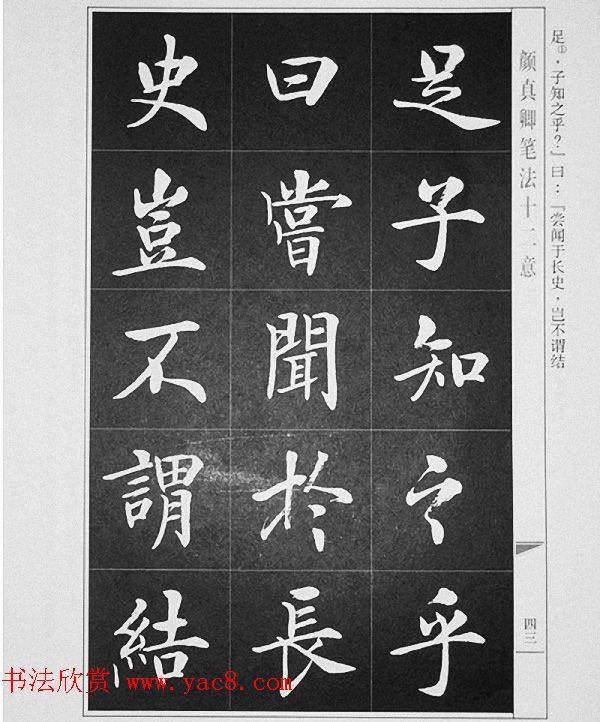 足子知之乎
曰嘗聞於長
史豈不謂結
颜真卿笔法十二意
四三
足①，子知之乎？」曰：「尝闻于长史，岂不谓结
书法欣赏 www.yac8.com